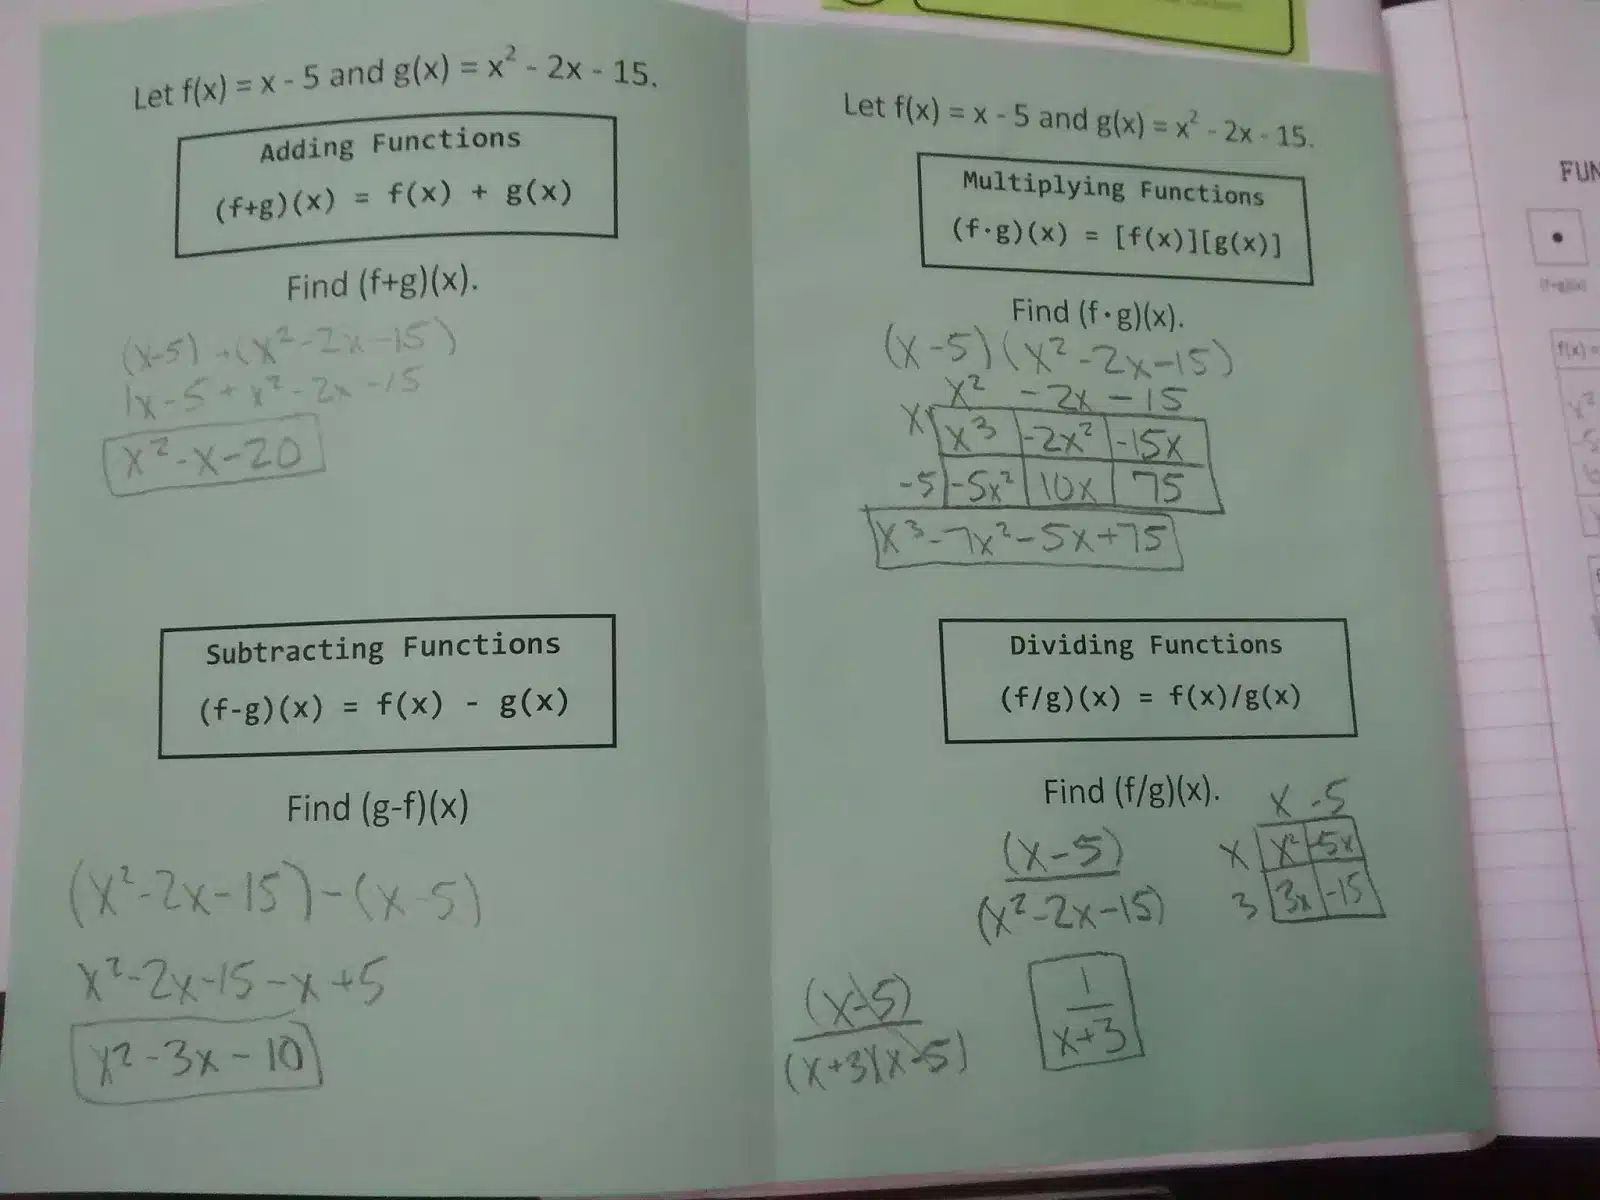 Let f(x) = x - 5 and g(x) = x² - 2x - 15.
Adding Functions
(f+g)(x) = f(x) + g(x)
Find (f+g)(x).
(x-5) + (x²-2x-15)
1x-5+x²-2x-15
x²-x-20
Subtracting Functions
(f-g)(x) = f(x) - g(x)
Find (g-f)(x)
(x²-2x-15)-(x-5)
x²-2x-15-x+5
x²-3x-10
Let f(x) = x - 5 and g(x) = x² - 2x - 15.
Multiplying Functions
(f·g)(x) = [f(x)][g(x)]
Find (f·g)(x).
(x-5)(x²-2x-15)
x² -2x -15
x x³ -2x² -15x
-5 -5x² 10x 75
x³-7x²-5x+75
Dividing Functions
(f/g)(x) = f(x)/g(x)
Find (f/g)(x).
x -5
x x² -5x
3 3x -15
(x-5)
(x²-2x-15)
(x-5)
(x+3)(x-5)
1
x+3
FUN
f(x) =